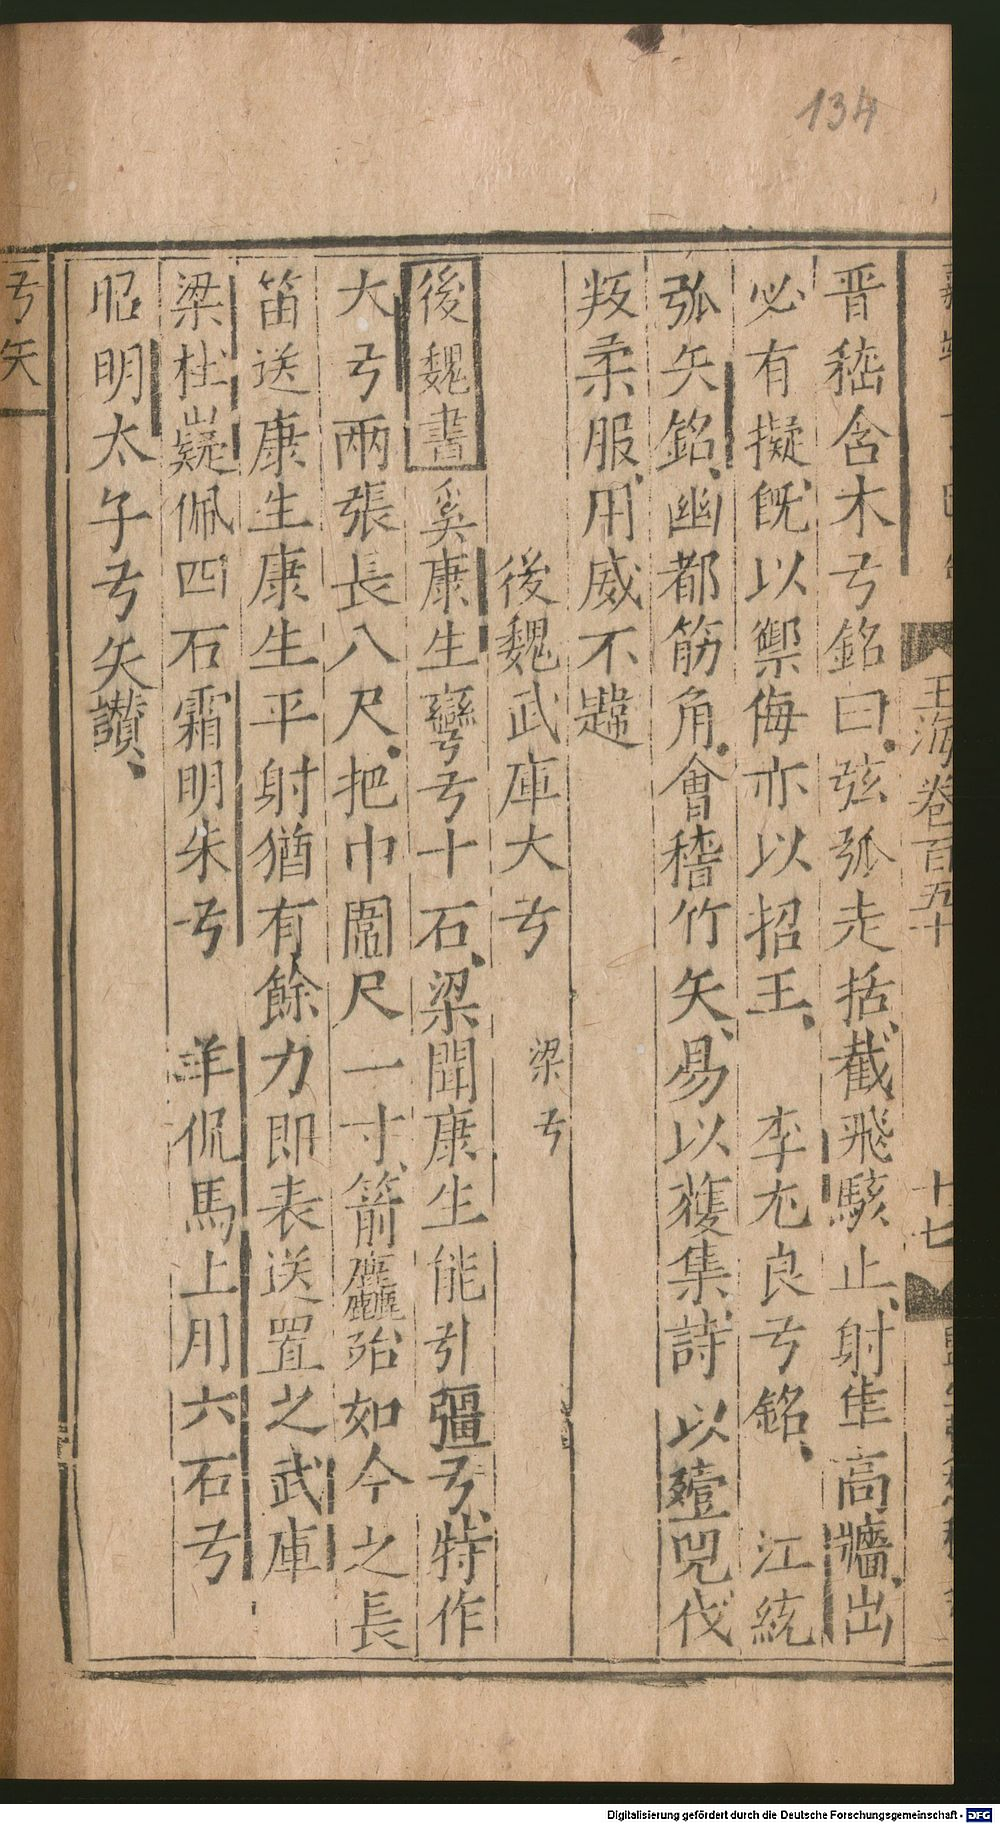 134
玉海卷百五十
十七
晋嵇含木弓銘曰弦弧走括截飛駭止射隼高墉出
必有擬旣以禦侮亦以招王　李尤良弓銘　江統
弧矢銘幽都筋角會稽竹矢易以獲隼詩以殪兕伐
叛柔服用威不韙
後魏武庫大弓　梁弓
後魏書奚康生彎弓十石梁聞康生能引彊弓特作
大弓兩張長八尺把中圍尺一寸箭麤殆如今之長
笛送康生康生平射猶有餘力即表送置之武庫
梁杜嶷佩四石霜明朱弓　羊侃馬上用六石弓
昭明太子弓矢讃
弓矢
Digitalisierung gefördert durch die Deutsche Forschungsgemeinschaft - DFG